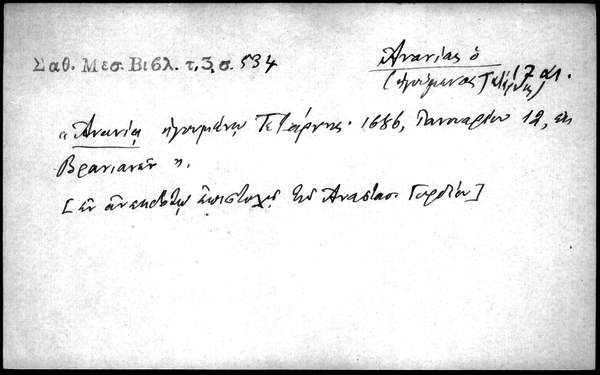 Σαθ. Μεσ. Βιβλ. τ. 3, σ. 534
Ἀνανίας ὁ
(ἡγούμενος Τατάρνης) 17 αι.
"Ἀνανίᾳ ἡγουμένῳ Τετάρνης· 1686, Ἰανουαρίου 12, ἐκ
Βρανιανῶν".
[ἐν ἀνεκδότῳ ἐπιστολῇ τοῦ Ἀναστασ. Γορδίου]